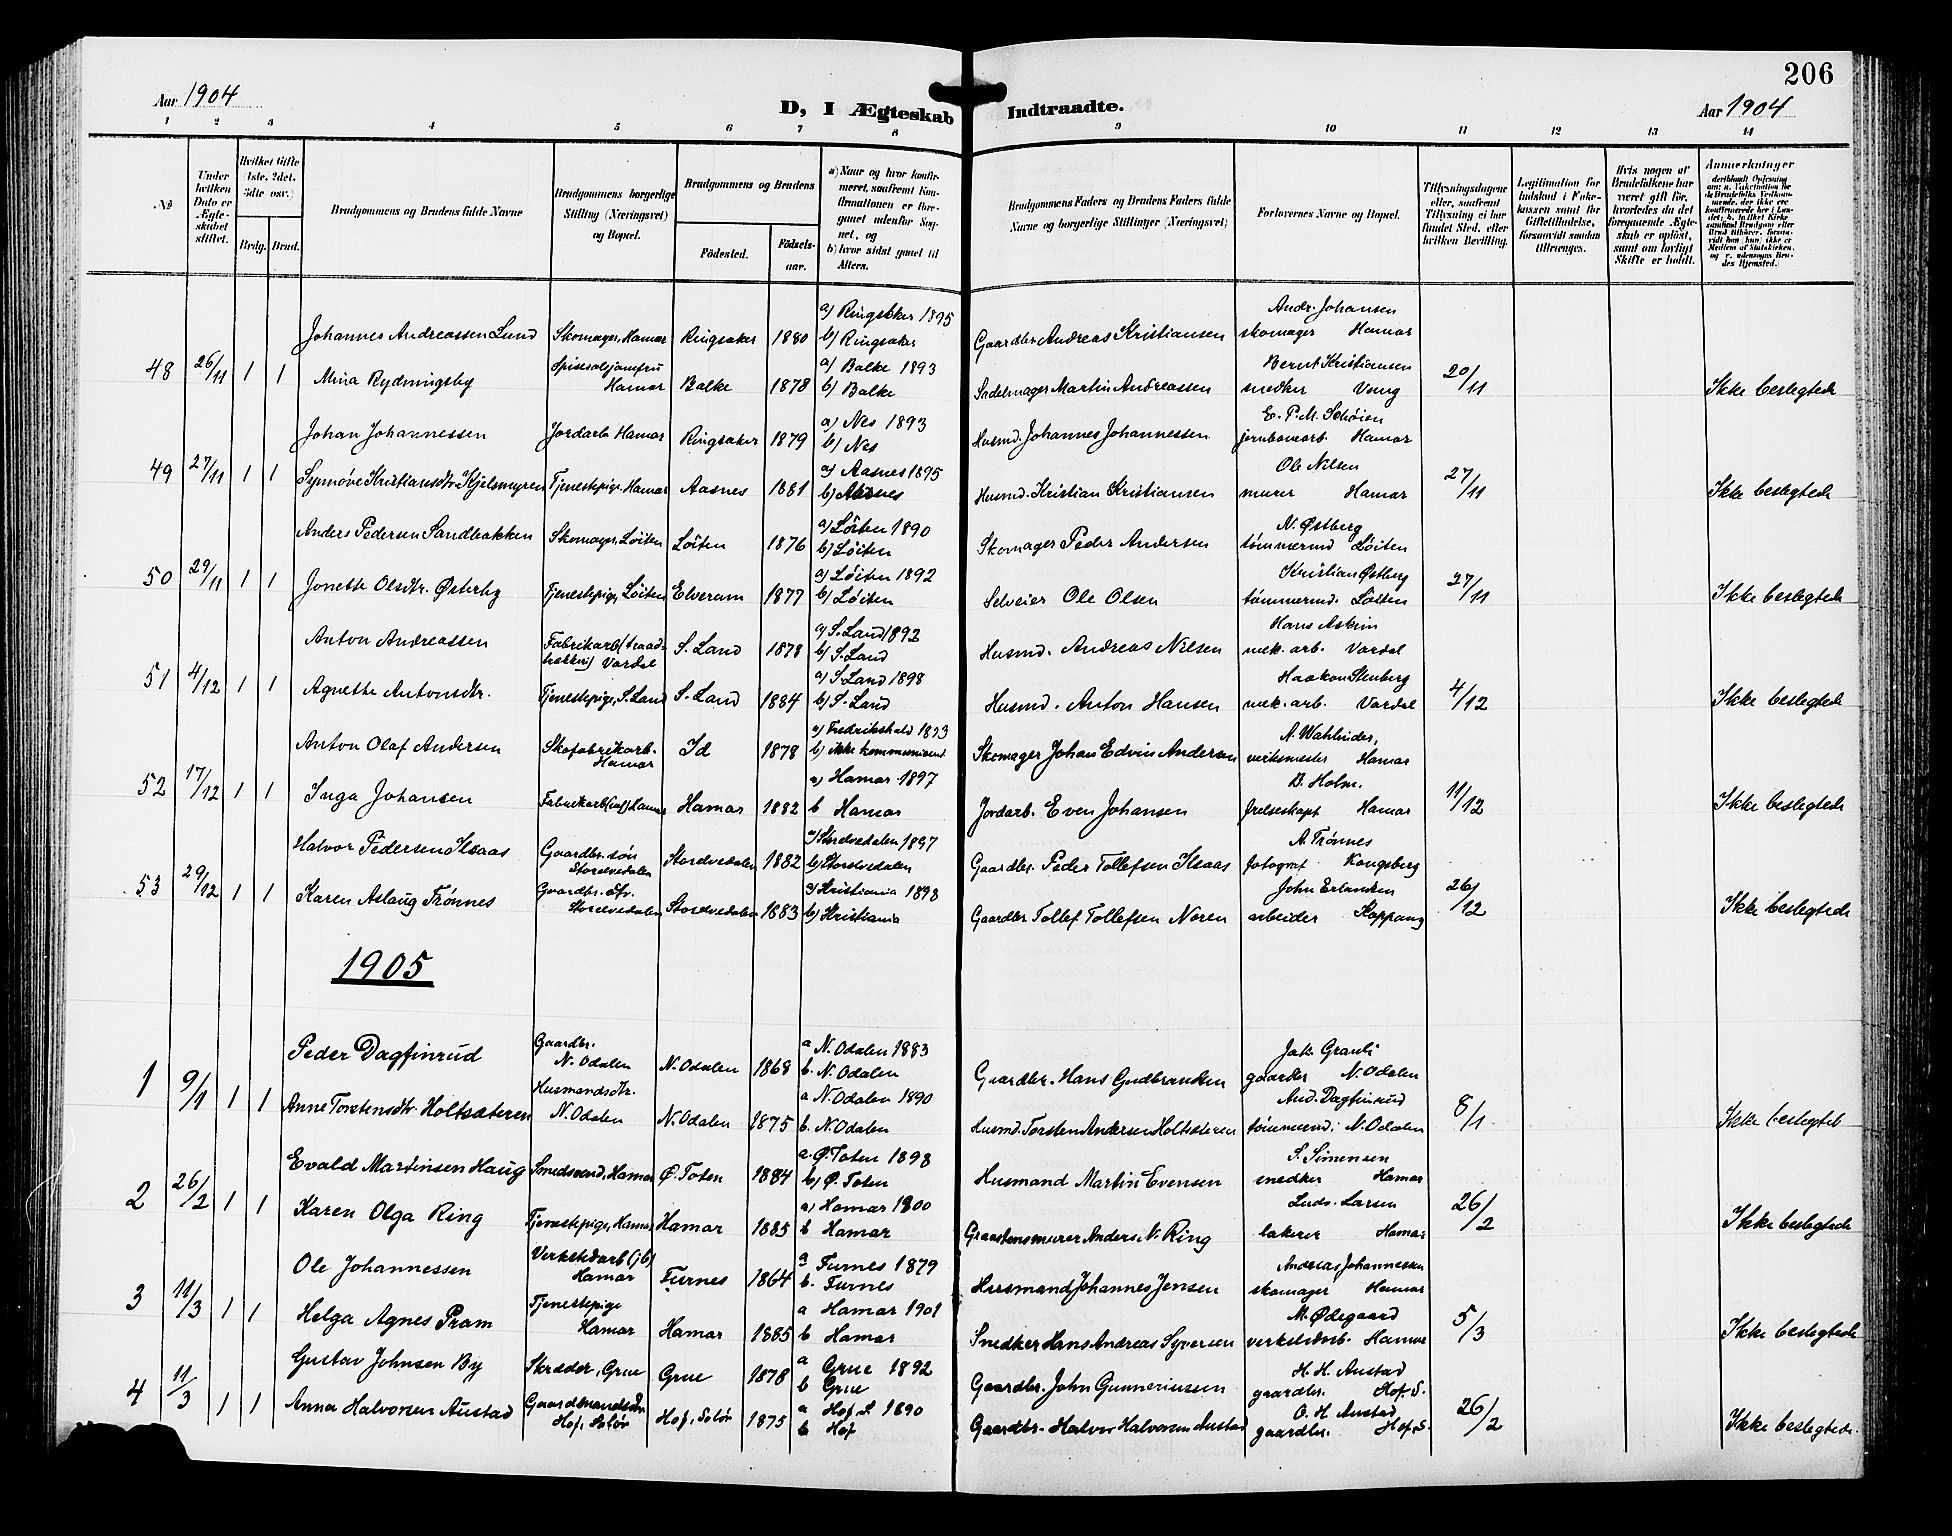 206
Aar 1904
D, I Ægteskab Indtraadte.
Aar 1904
1 2 3 4 5 6 7 8 9 10 11 12 13 14
№
Under hvilken Dato er Ægteskabet stiftet.
Hvilket Gifte (1ste, 2det, 3die osv.)
Brdg. Brud.
Brudgommens og Brudens fulde Navne
Brudgommens borgerlige Stilling (Næringsvei) og Bopæl.
Brudgommens og Brudens
Födested. Födsels-aar.
a) Naar og hvor konfirmeret, saafremt Konfirmationen er foregaaet udenfor Sognet, og
b) hvor sidst gaaet til Alters.
Brudgommens Faders og Brudens Faders fulde Navne og borgerlige Stillinger (Næringsvei)
Forlovernes Navne og Bopæl.
Tillysningsdagene eller, saafremt Tillysning ei har fundet Sted, efter hvilken Bevilling.
Legitimation for Indskud i Enkekassen samt for Giftetilladelse, forsaavidt saadan tiltrænges.
Hvis nogen af Brudefolkene har været gift før, hvorledes da det foregaaende Ægteskab er oplöst, samt om lovligt Skifte er holdt.
Anmerkninger
Johannes Andreassen Lund Skomager, Hamar Ringsaker 1880 a) Ringsaker 1895 b) Ringsaker Gaardbr Andreas Kristiansen Andr. Johansen skomager Hamar
48 26/11 1 1 Mina Rydningsby Spisesaljomfru Hamar Balke 1878 a) Balke 1893 b) Balke Sadelmager Martin Andreassen Bernt Kristiansen snedker Vang 20/11 Ikke beslegtede
Johan Johannessen Jordarb Hamar Ringsaker 1879 a) Nes 1893 b) Nes Husmd. Johannes Johannessen E. P. M. Schøien jernbanearb. Hamar
49 27/11 1 1 Synnøve Kristiansdtr. Kjelsmyren Tjenestepige, Hamar Aasnes 1881 a) Aasnes 1895 b) Aasnes Husmd. Kristian Kristiansen Ole Nilsen murer Hamar 27/11 Ikke beslegtede
Anders Pedersen Sandbakken Skomager, Løiten Løiten 1876 a) Løiten 1890 b) Løiten Skomager Peder Andersen N. Østberg tømmermd Løiten
50 29/11 1 1 Jonette Olsdtr. Østerby Tjenestepige, Løiten Elverum 1877 a) Løiten 1892 b) Løiten Selveier Ole Olsen Kristian Østberg tømmermd. Løiten 27/11 Ikke beslegtede
Anton Andreassen Fabrikarb (traadtrekkeri) Vardal S. Land 1878 a) S. Land 1892 b) S. Land Husmd. Andreas Nilsen Hans Askim mek. arb. Vardal
51 4/12 1 1 Agnethe Antonsdtr. Tjenestepige, S. Land S. Land 1884 a) S. Land 1898 b) S. Land Husmd. Anton Hansen Haakon Stenberg mek. arb. Vardal 4/12 Ikke beslegtede
Anton Olaf Andersen Skofabrikarb. Hamar Id 1878 a) Fredrikshald 1893 b) ikke kommuniseret Skomager Johan Edvin Andersen A. Wahlinder, verksmester Hamar
52 17/12 1 1 Inga Johansen Fabrikarb Hamar Hamar 1882 a) Hamar 1897 b Hamar Jordarb. Even Johansen B. Holm. frelseskapt Hamar 11/12 Ikke beslegtede
Halvor Pedersen Ilsaas Gaardbr. søn Storelvedalen Storelvedalen 1882 a) Storelvedalen 1897 b) Storelvedalen Gaardbr. Peder Tollefsen Ilsaas A. Trønnes fotograf Kongsberg
53 29/12 1 1 Karen Aslaug Trønnes Gaardbr. dtr. Storelvedalen Storelvedalen 1883 a) Kristiania 1898 b) Kristiania Gaardbr Tollef Tollefsen Noren John Erlandsen arbeider Koppang 26/12 Ikke beslegtede
1905
Peder Dagfinrud Gaardbr. N. Odalen N. Odalen 1868 a N. Odalen 1883 b. N. Odalen Gaardbr. Hans Gudbrandsen Jak. Grauli gaardbr N. Odalen
1 9/1 1 1 Anne Torstensdtr. Holtsæteren Husmandsdtr. N. Odalen N. Odalen 1875 a N. Odalen 1890 b. N. Odalen Husmd. Torsten Andersen Holtsæteren And. Dagfinrud tømmermd. N. Odalen 8/1 Ikke beslegted
Evald Martinsen Haug Smedsvend, Hamar Ø. Toten 1884 a Ø. Toten 1898 b) Ø. Toten Husmand Martin Evensen S. Simensen snedker Hamar
2 26/2 1 1 Karen Olga Ring Tjenestepige, Hamar Hamar 1885 a) Hamar 1900 b Hamar Graastensmurer Anders N. Ring Ludv. Larsen lakerer Hamar 26/2 Ikke beslegtede
Ole Johannessen Verkstedarb (jb) Hamar Furnes 1864 a Furnes 1879 b. Furnes Husmand Johannes Jensen Andreas Johannessen skomager Hamar
3 11/3 1 1 Helga Agnes Pram Tjenestepige Hamar Hamar 1885 a Hamar 1901 b Hamar Snedker Hans Andreas Syversen M. Ødegaard verkstedarb. Hamar 5/3 Ikke beslegtede
Gustav Johnsen By Skræder, Grue Grue 1878 a Grue 1892 b Grue Gaardbr. John Gunneriussen H. H. Austad gaardbr. Hof. S.
4 11/3 1 1 Anna Halvorsen Austad Gaardmandsdtr Hof, Solør Hof, Solør 1875 a Hof S. 1890 b Hof Gaardbr. Halvor Halvorsen Austad O. H. Austad gaardbr. Hof. S. 26/2 Ikke beslegtede.